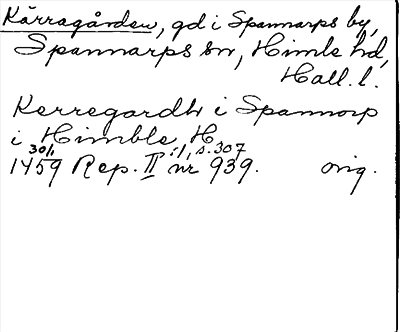 Kärragården, gd i Spannarps by,
Spannarps sn, Himle hd,
Hall. l.
Kerregardh i Spannorp
i Himble H
30/1 :1, s. 307
1459 Rep. II nr 939. orig.